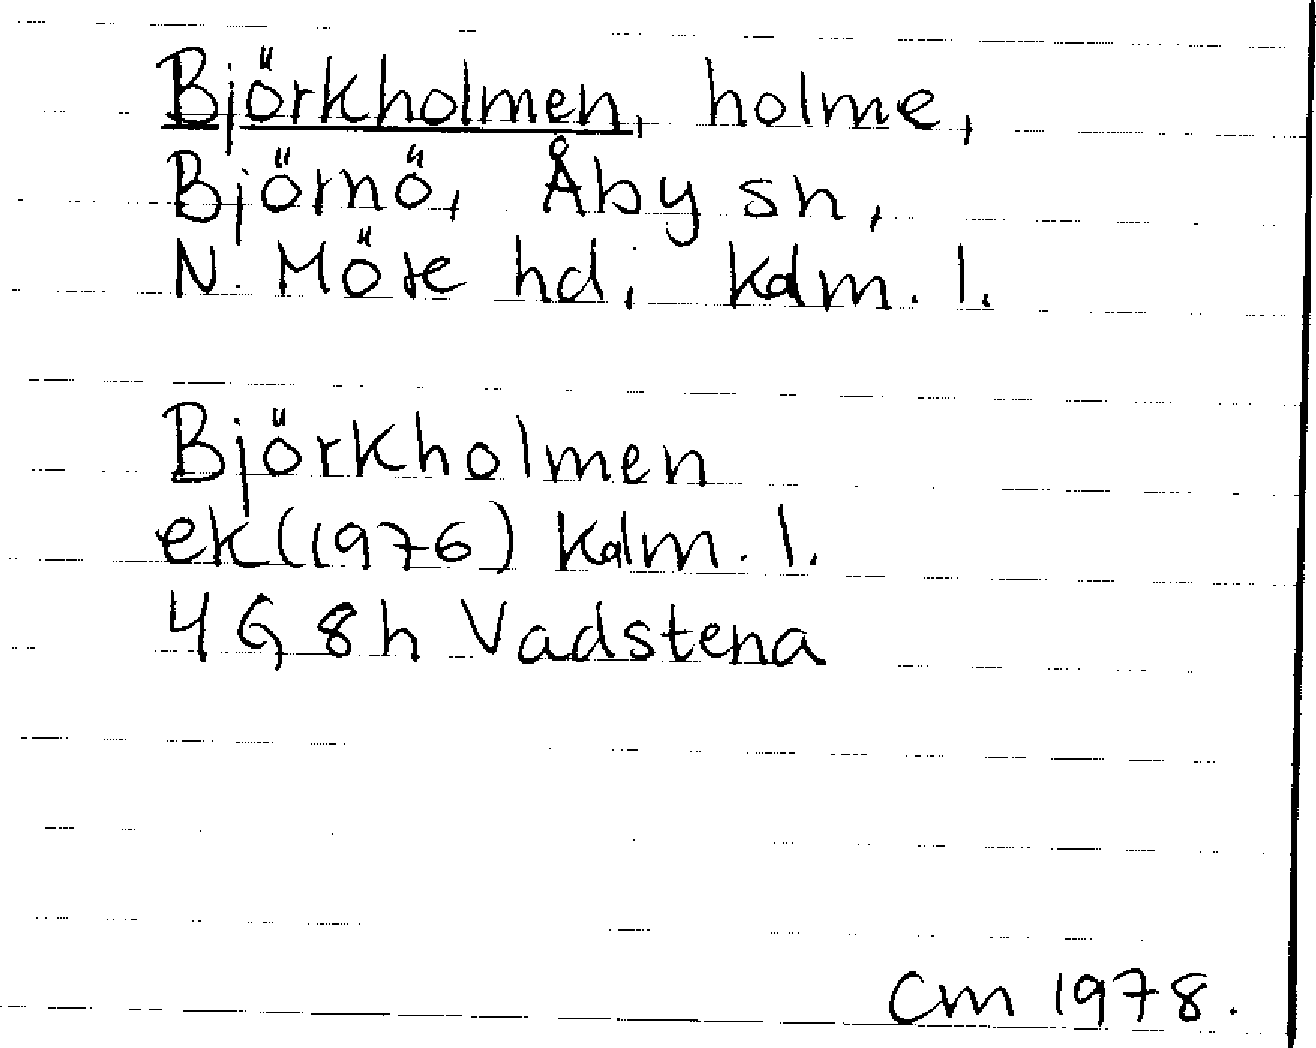 Björkholmen, holme,
Björnö, Åby sn,
N. Möre hd, Kalm. l.
Björkholmen
ek (1976) Kalm. l.
4 G 8 h Vadstena
CM 1978.